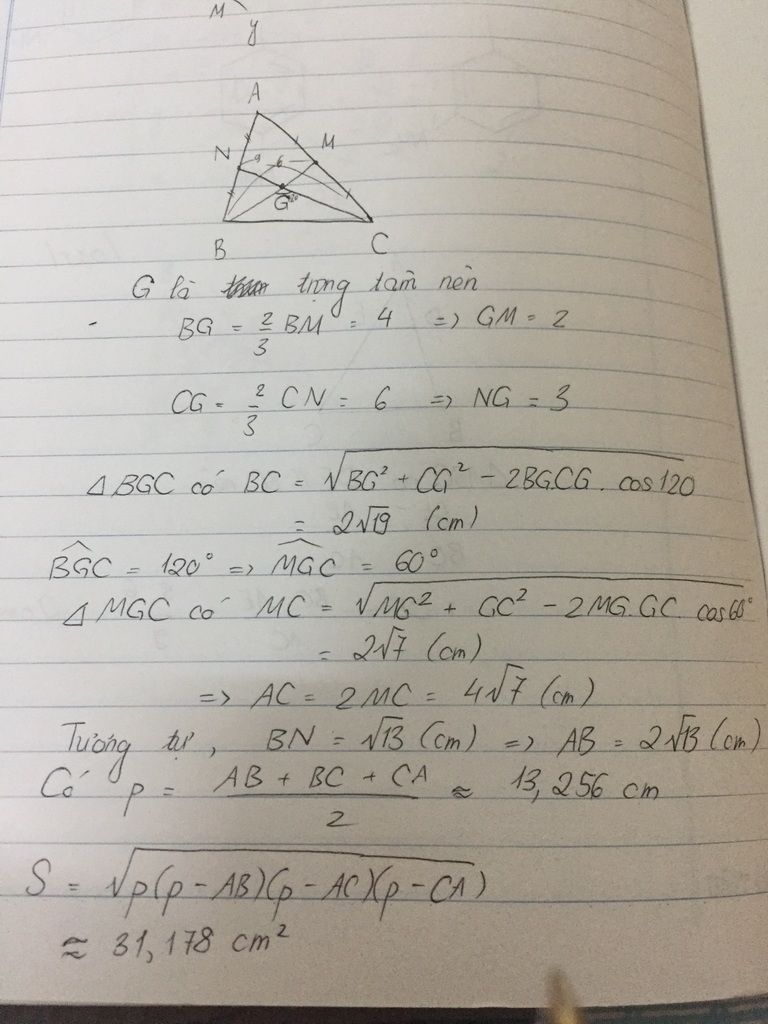 M
y
A
N 9 6 M
G
B C
G là trọng tâm nên
- BG = 2/3 BM = 4 => GM = 2
CG = 2/3 CN = 6 => NG = 3
Δ BGC có BC = √(BG² + CG² - 2BG.CG. cos120)
= 2√19 (cm)
BGC = 120° => MGC = 60°
Δ MGC có MC = √(MG² + GC² - 2MG.GC. cos60°)
= 2√7 (cm)
=> AC = 2MC = 4√7 (cm)
Tương tự, BN = √13 (cm) => AB = 2√13 (cm)
Có p = (AB + BC + CA)/2 ≈ 13,256 cm
S = √(p(p - AB)(p - AC)(p - CA))
≈ 31,178 cm²